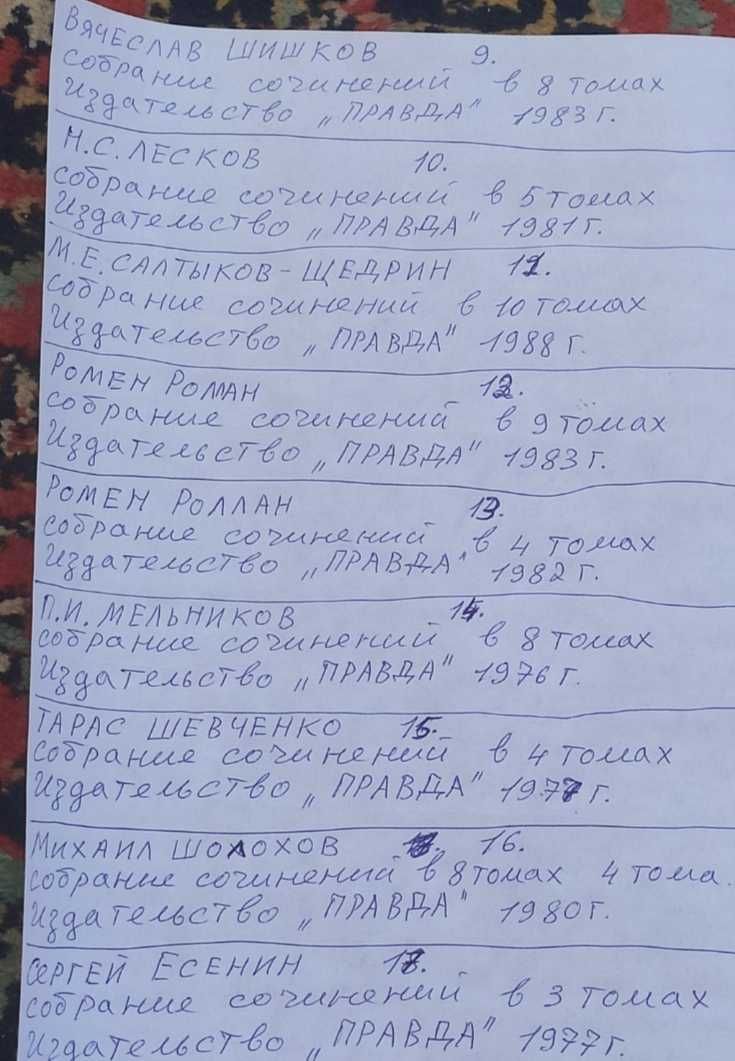 ВЯЧЕСЛАВ ШИШКОВ 9.
собрание сочинений в 8 томах
Издательство „ПРАВДА" 1983 г.
Н.С. ЛЕСКОВ 10.
собрание сочинений в 5 томах
Издательство „ПРАВДА" 1981 г.
М.Е. САЛТЫКОВ-ЩЕДРИН 11.
собрание сочинений в 10 томах
Издательство „ПРАВДА" 1988 г.
РОМЕН РОЛЛАН 12.
собрание сочинений в 9 томах
Издательство „ПРАВДА" 1983 г.
РОМЕН РОЛЛАН 13.
собрание сочинений в 4 томах
Издательство „ПРАВДА" 1982 г.
П.И. МЕЛЬНИКОВ 14.
собрание сочинений в 8 томах
Издательство „ПРАВДА" 1976 г.
ТАРАС ШЕВЧЕНКО 15.
собрание сочинений в 4 томах
Издательство „ПРАВДА" 1977 г.
МИХАИЛ ШОЛОХОВ 16.
собрание сочинений в 8 томах 4 тома.
Издательство „ПРАВДА" 1980 г.
СЕРГЕЙ ЕСЕНИН 17.
собрание сочинений в 3 томах
Издательство „ПРАВДА" 1977 г.